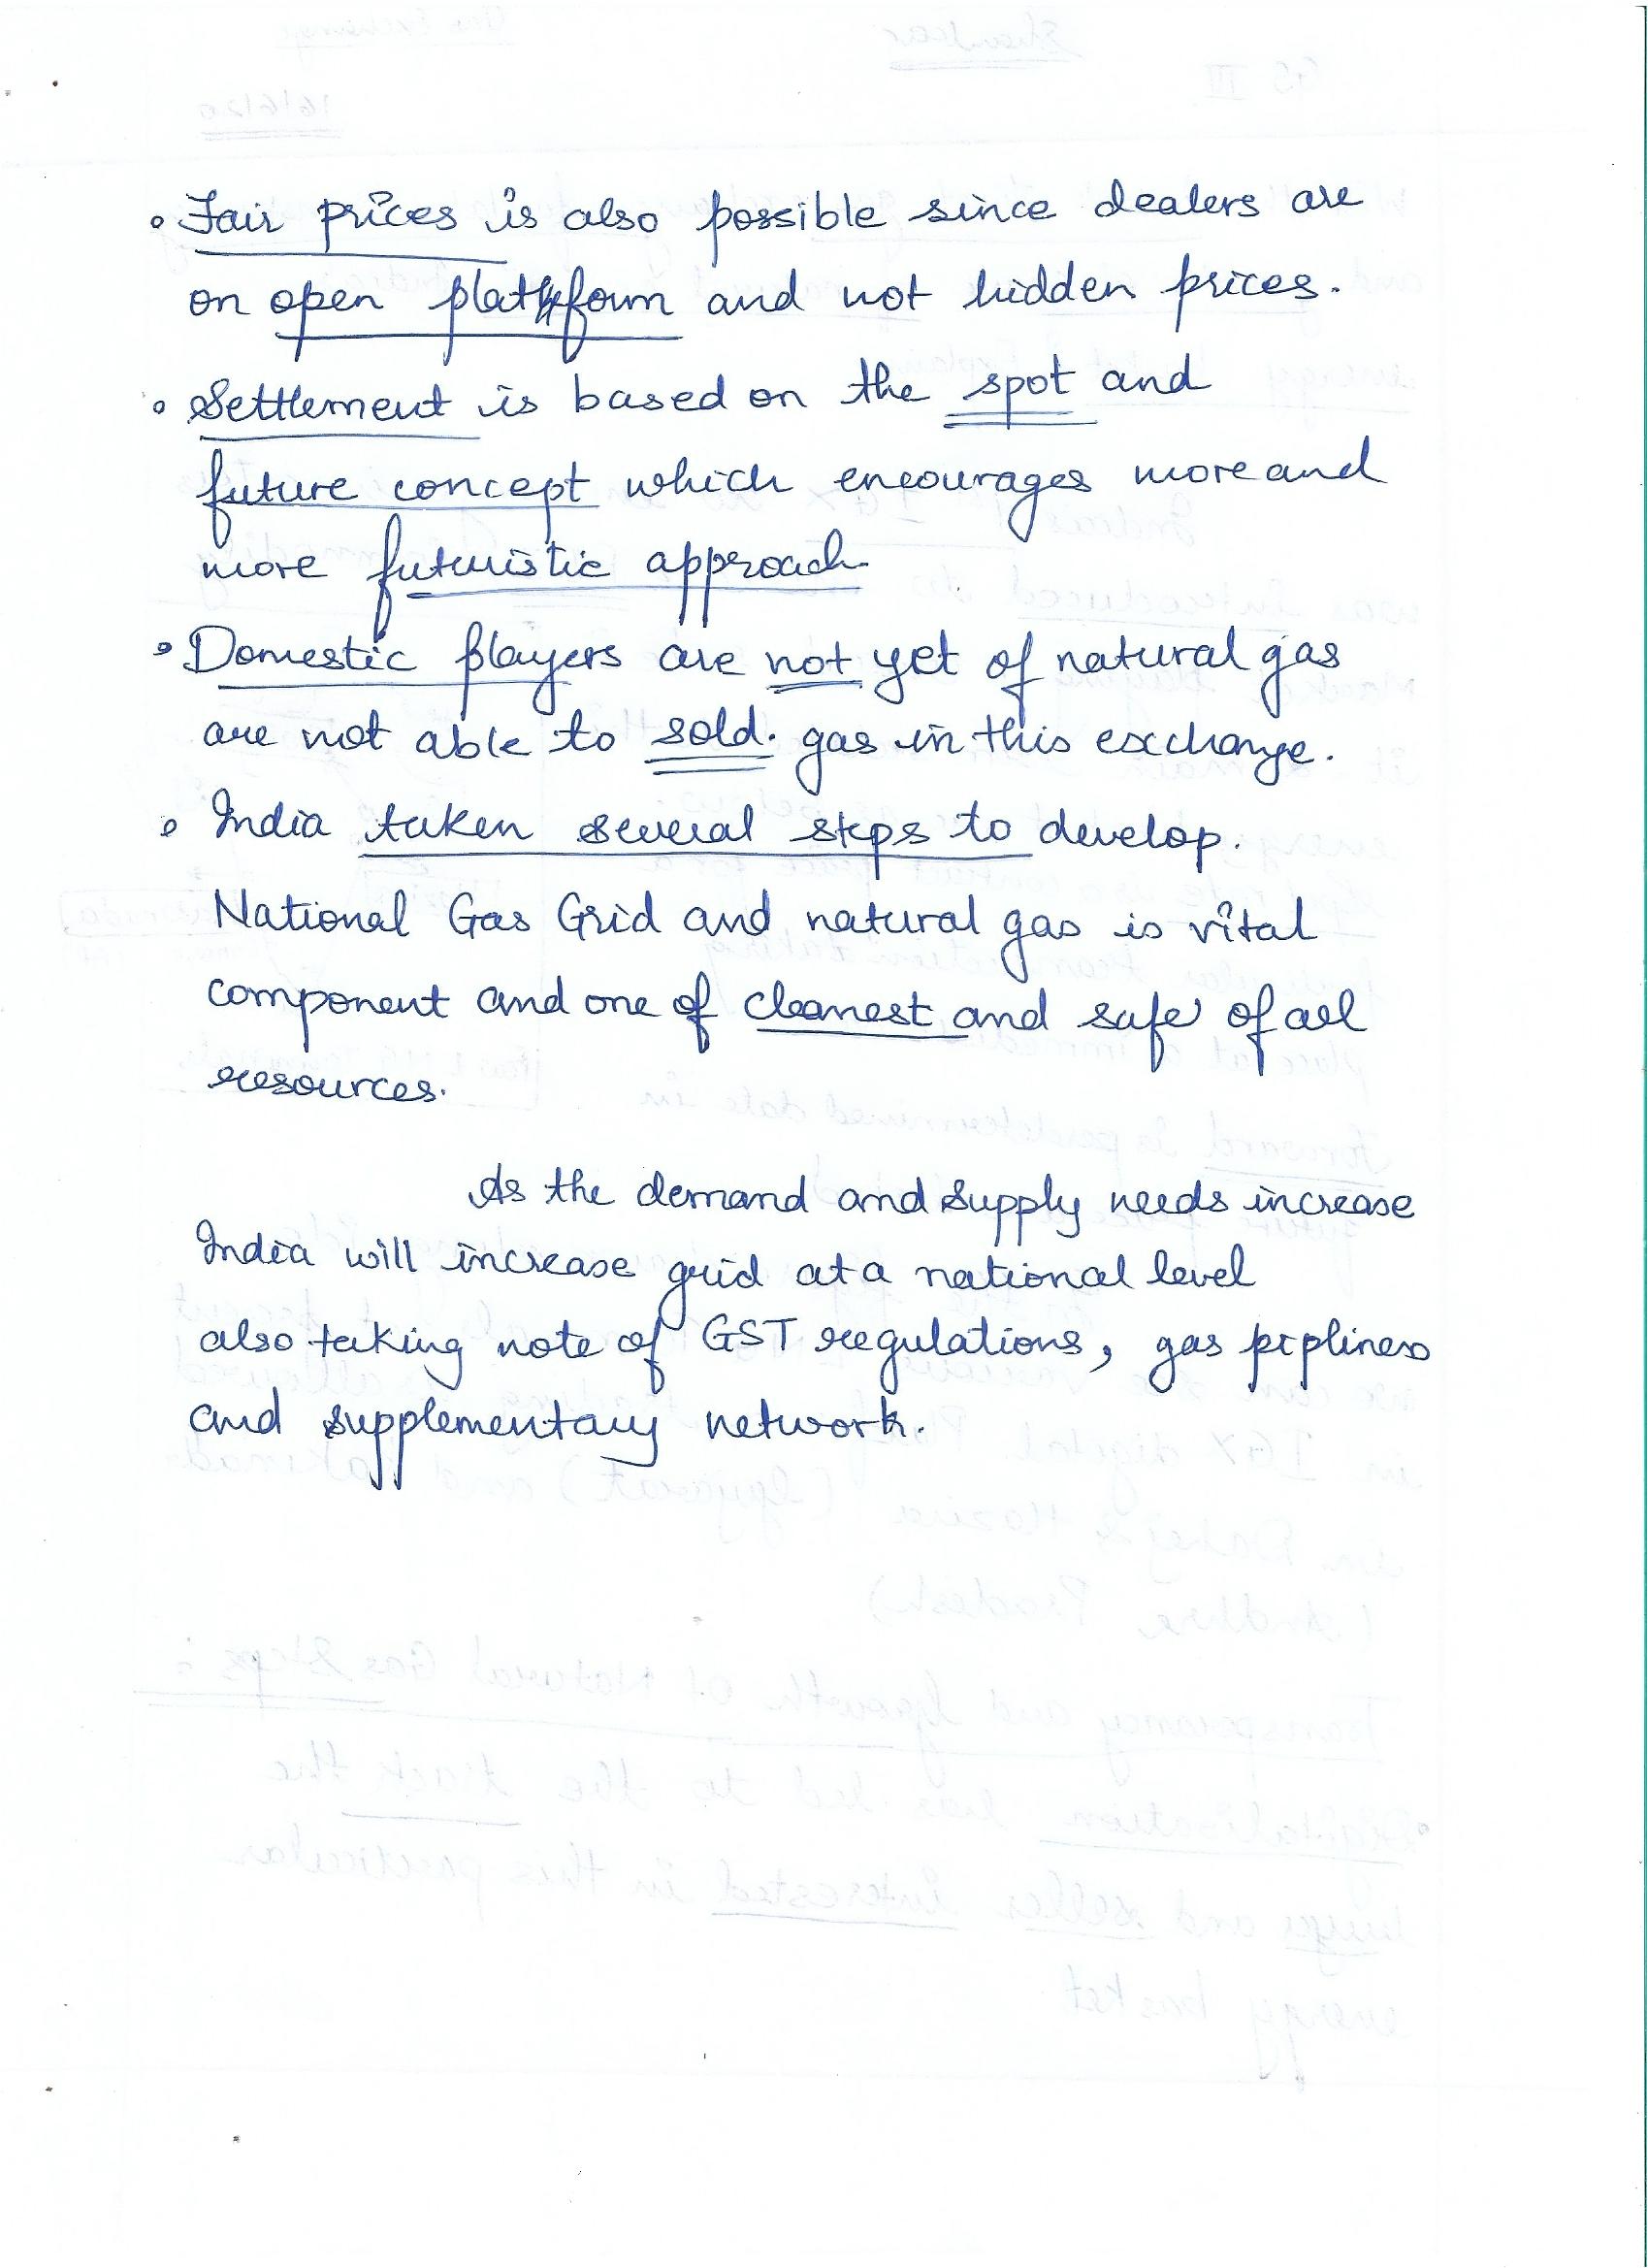 • Fair prices is also possible since dealers are
on open platform and not hidden prices.
• Settlement is based on the spot and
future concept which encourages more and
more futuristic approach.
• Domestic players are not yet of natural gas
are not able to sold. gas in this exchange.
• India taken several steps to develop.
National Gas Grid and natural gas is vital
component and one of cleanest and safe of all
resources.
As the demand and supply needs increase
India will increase grid at a national level
also taking note of GST regulations, gas pipliness
and supplementary network.